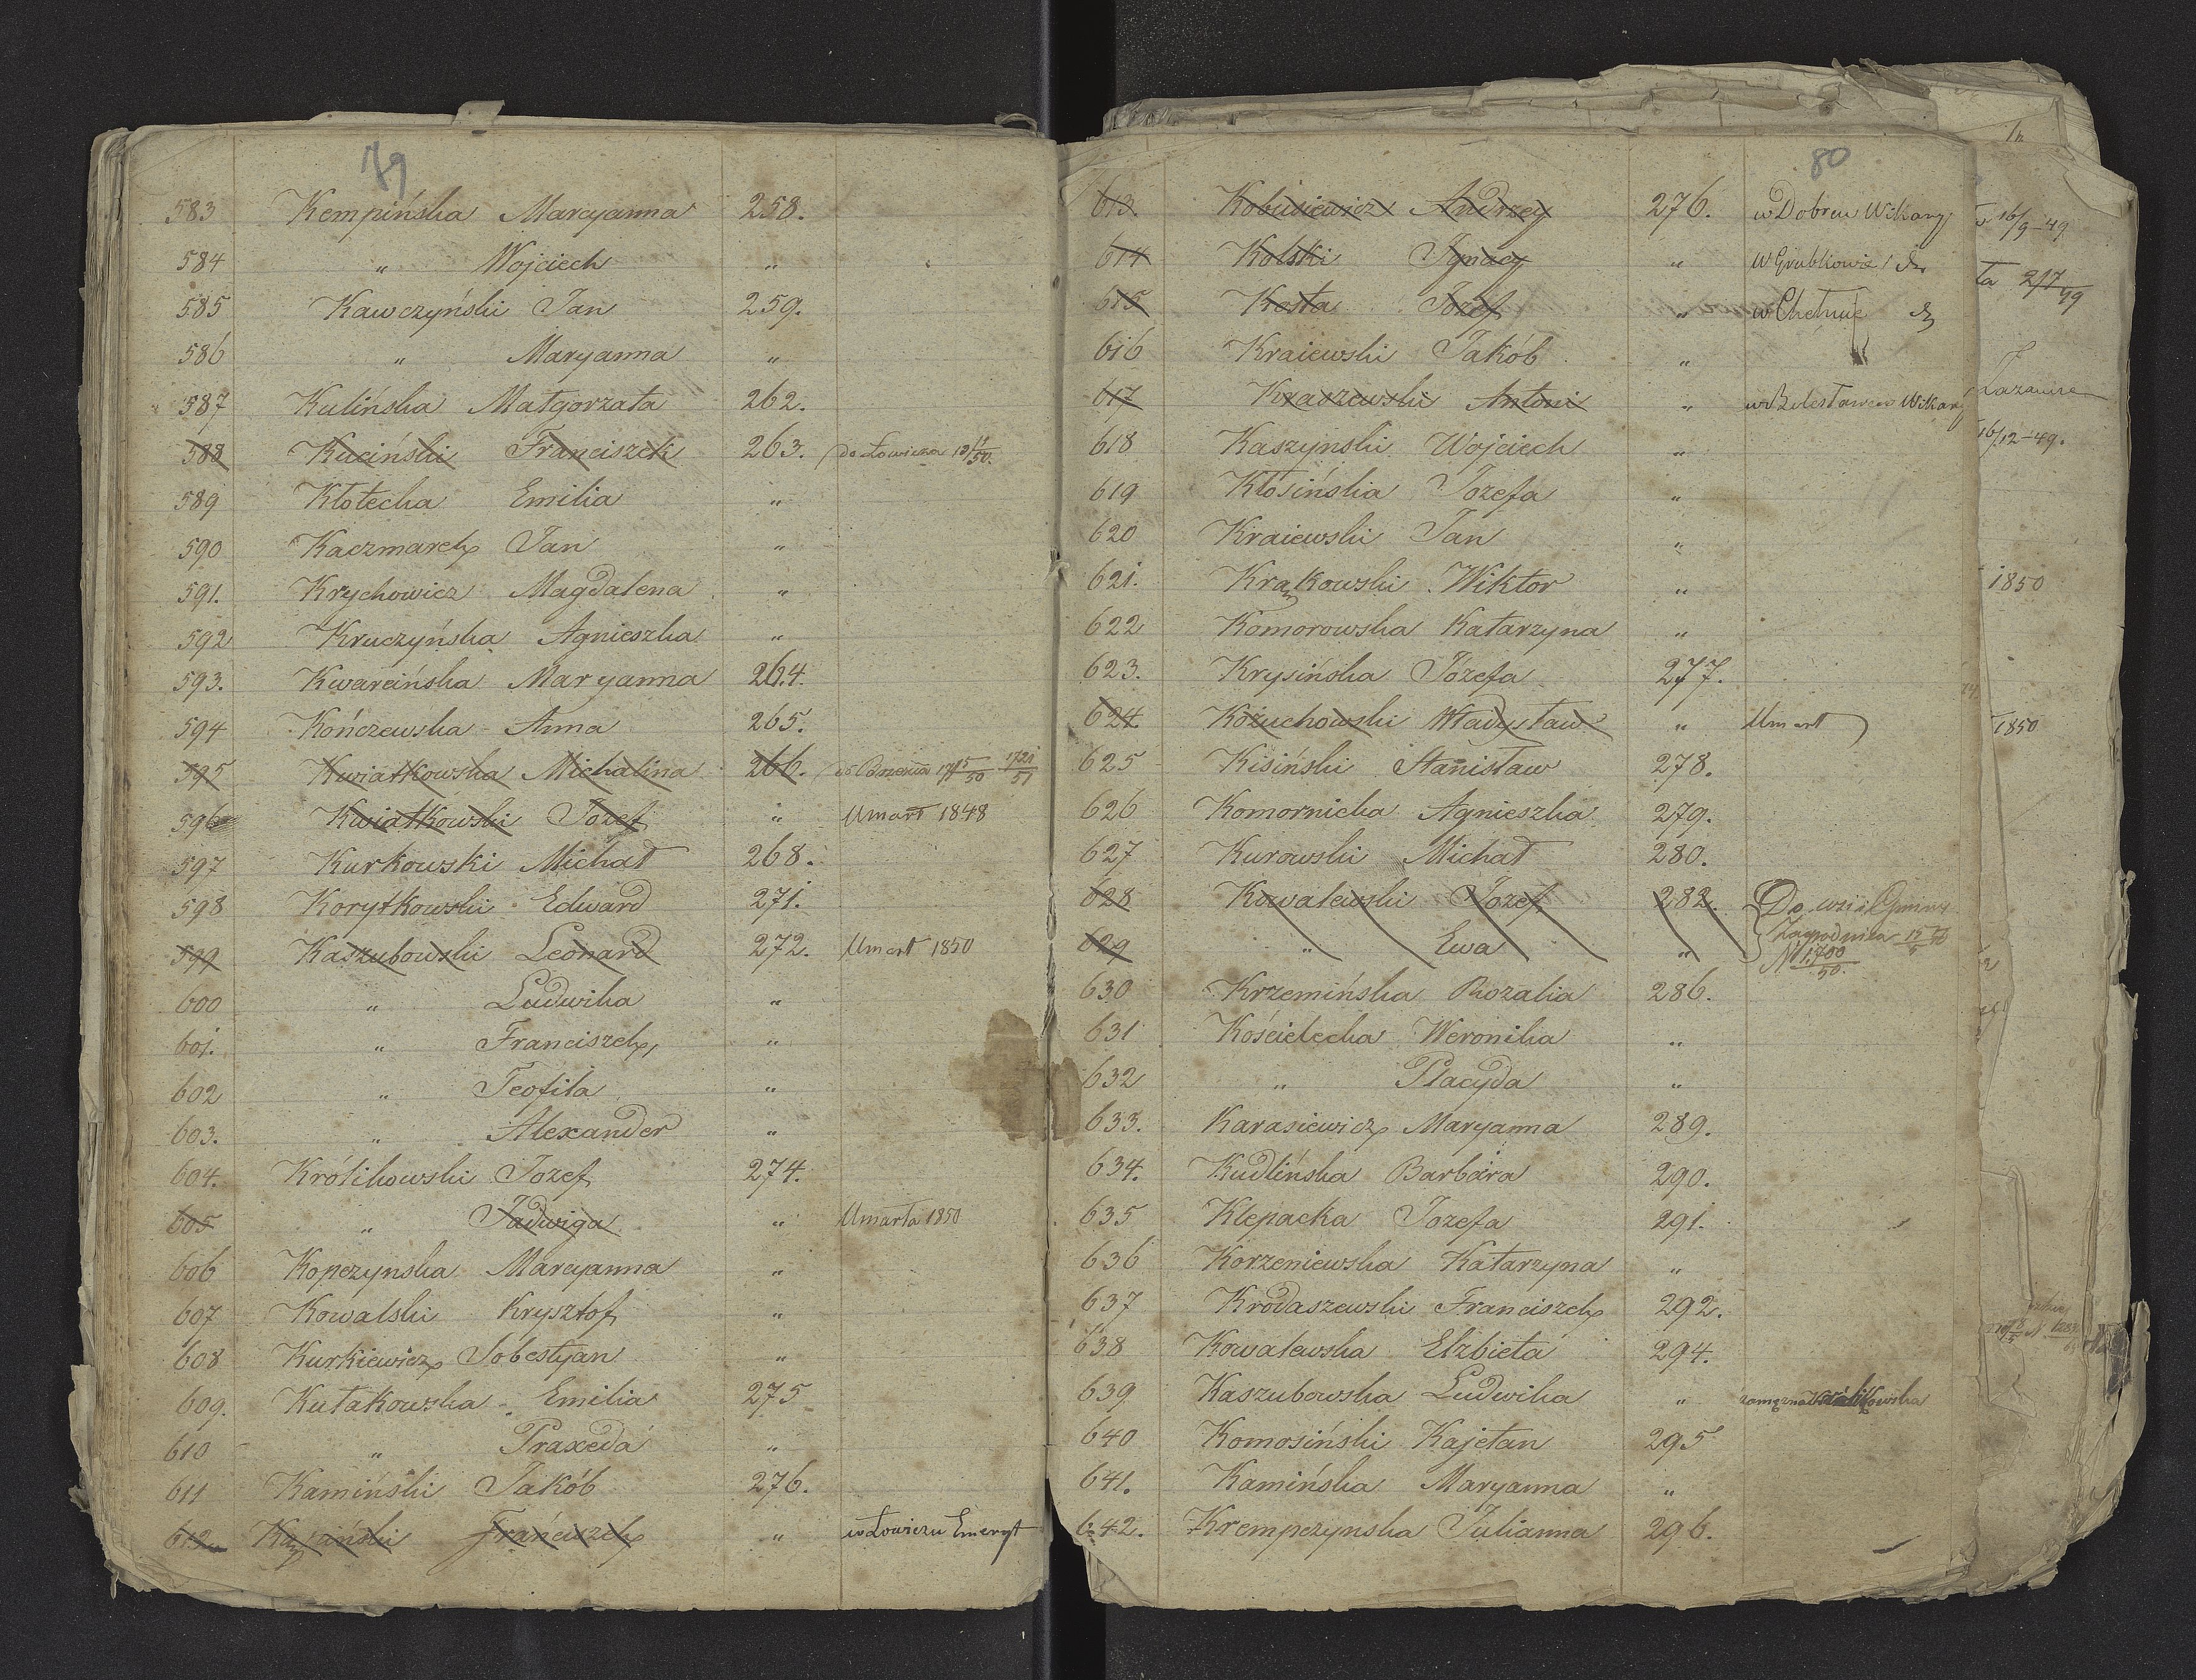 79
583 Kempińska Maryanna 258.
584 " Wojciech "
585 Kawczyński Jan 259.
586 " Maryanna "
587 Kulińska Małgorzata 262.
588 Kuciński Franciszek 263. do Łowicza
589 Kłotecka Emilia "
590 Kaczmarek Jan "
591. Krychowicz Magdalena "
592 Kruczyńska Agnieszka "
593. Kwarcińska Maryanna 264.
594 Kończewska Anna 265.
595 Kwiatkowska Michalina 266.
596 Kwiatkowski Józef " Umarł 1848
597 Kurkowski Michał 268.
598 Korytkowski Edward 271.
599 Kaszubowski Leonard 272. Umarł 1850
600 " Ludwika "
601. " Franciszek "
602 " Teofila "
603. " Alexander "
604. Królikowski Jozef 274.
605 " Jadwiga " Umarła 1850
606 Kopczynska Maryanna "
607 Kowalski Krysztof "
608 Kurkiewicz Sobestyan "
609. Kułakowska Emilia 275
610 " Praxeda "
611 Kamiński Jakób 276.
612. Franciszek " w Łowiczu Emeryt
80
613. Kobusiewicz Andrzey 276. w Dobrcu Wikary
614 Kolski Ignacy "
615 Kosta Józef "
616 Kraiewski Jakób "
617 Kraszewski Antoni " Wikary
618 Kaszynski Wojciech "
619 Kłosińska Józefa "
620 Kraiewski Jan "
621. Krąkowski Wiktor "
622 Komorowska Katarzyna "
623. Krysińska Józefa 277.
624. Kożuchowski Władysław " Umarł
625 Kisiński Stanisław 278.
626 Komornicka Agnieszka 279.
627 Kurowski Michał 280.
628 Kowalewski Jozef 282. Do wsi i Gminy
629 " Ewa " Zagrodnica
N 1,700/50.
630 Krzemińska Rozalia 286.
631 Kościelecka Weronika "
632 " Placyda "
633. Karasiewicz Maryanna 289.
634. Kudlińska Barbara 290.
635 Klepacka Jozefa 291.
636 Korzeniewska Katarzyna "
637 Krodaszewski Franciszek 292.
638 Kowalewska Elżbieta 294.
639 Kaszubowska Ludwika " zamężna Królikowska
640 Komosiński Kajetan 295
641. Kamińska Maryanna "
642. Krempczynska Julianna 296.
16/9-49
16/12-49.
1850
1850